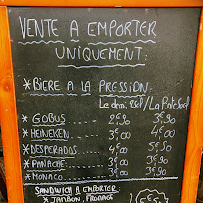 VENTE A EMPORTER
UNIQUEMENT
*BIERE A LA PRESSION.
Le demi 25cl / La Pinte 50cl
*GOBUS 2€90 3€90
*HEINEKEN 3€00 4€00
*DESPERADOS 4€00 5€00
*PANACHÉ 3€00 3€90
*MONACO
SANDWICH A EMPORTER
*JAMBON, FROMAGE